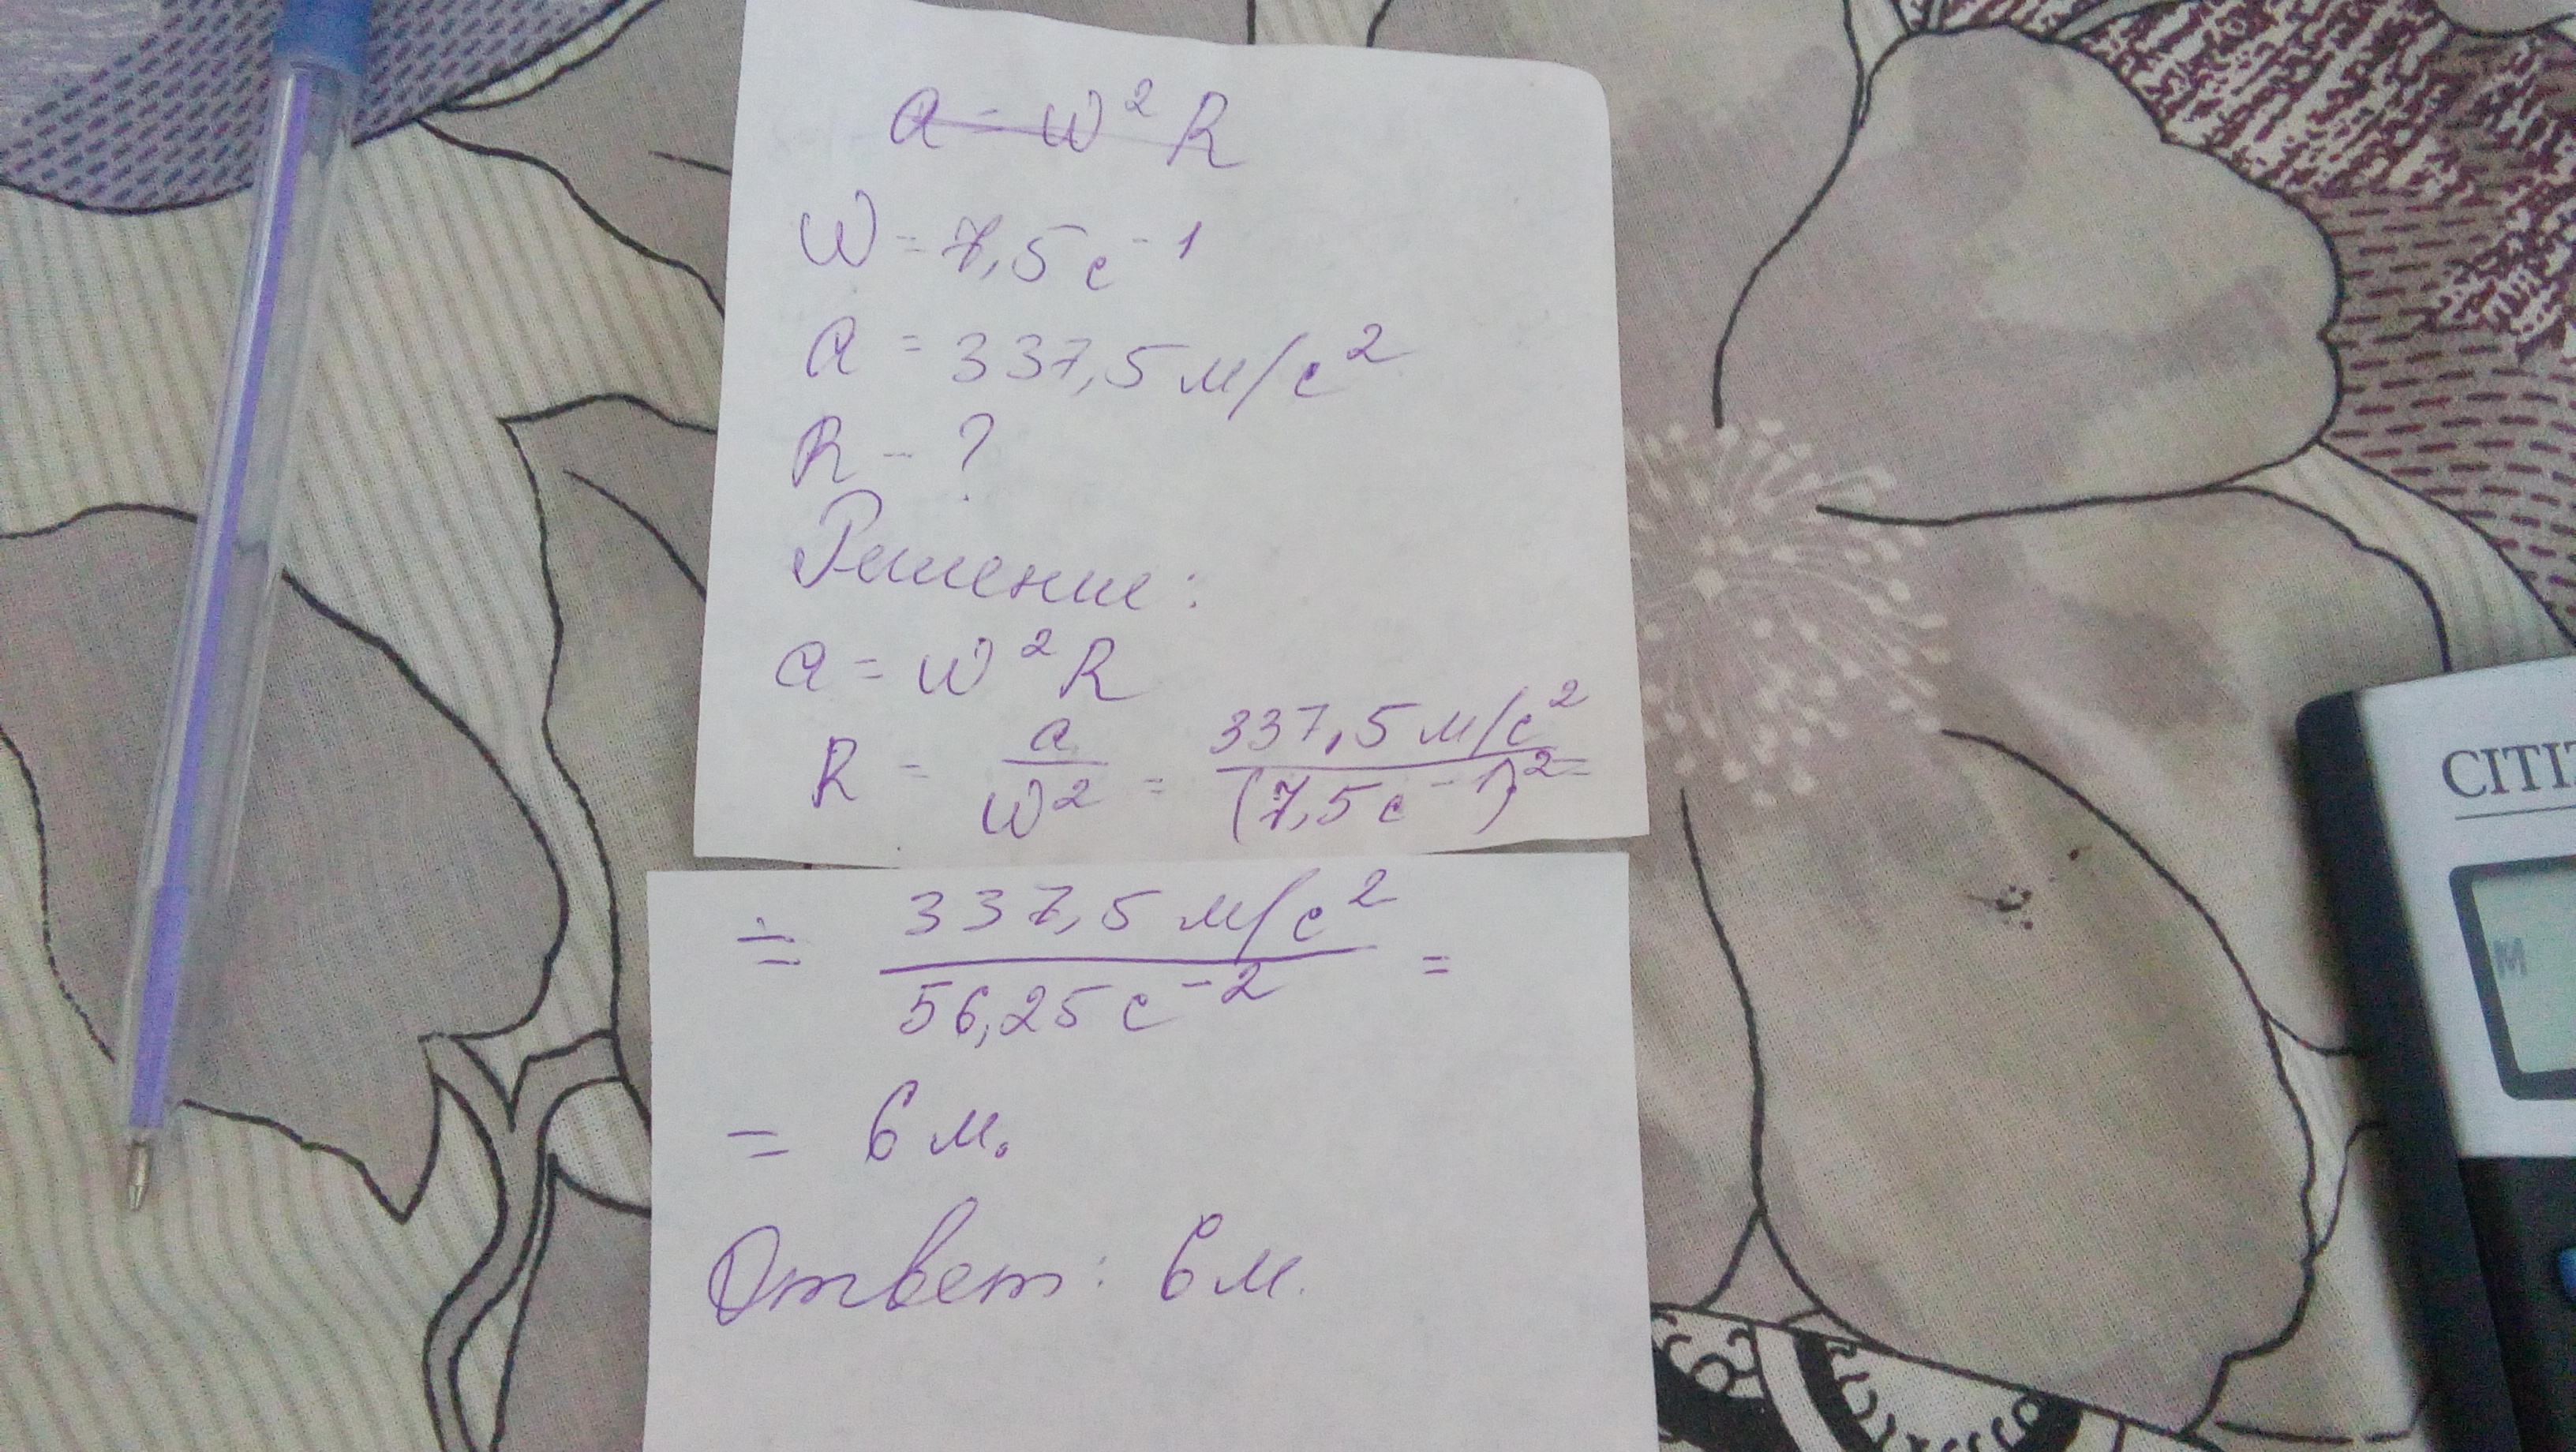 a = ω² R
ω = 7,5 с⁻¹
a = 337,5 м/с²
R - ?
Решение:
a = ω² R
R = a/ω² = 337,5 м/с² / (7,5 с⁻¹)² =
= 337,5 м/с² / 56,25 с⁻² =
= 6 м.
Ответ: 6 м.
CITI
M